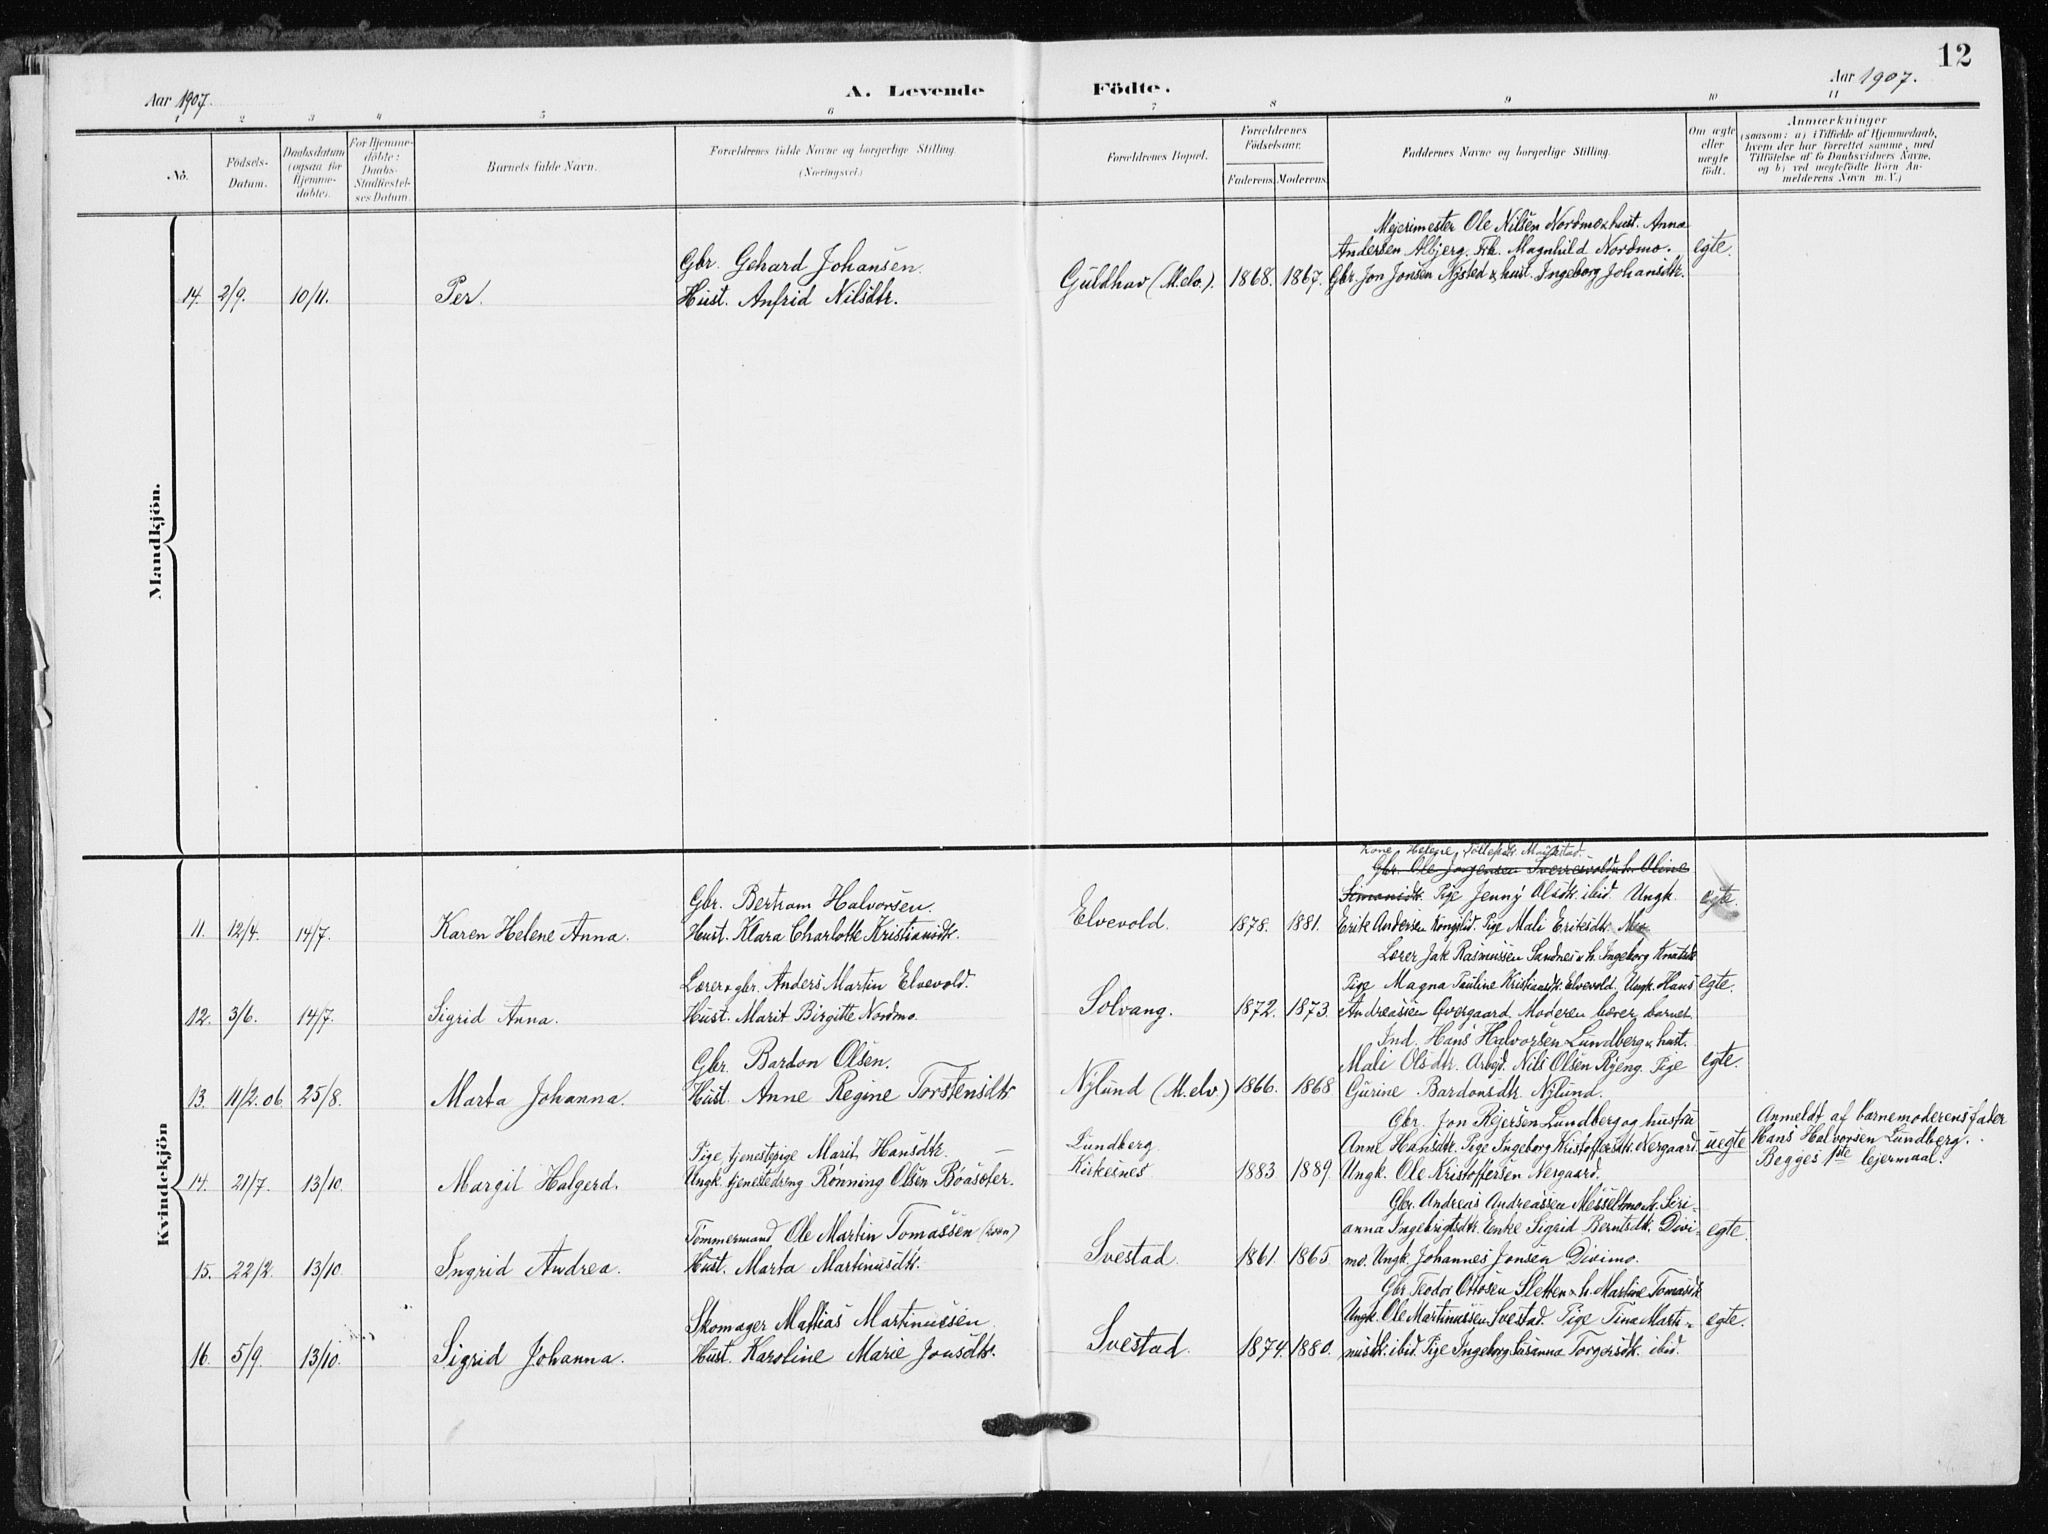 12
Aar 1907.
A. Levende
Födte.
Aar 1907.
1 2 3 4 5 6 7 8 9 10 11
No.
Födsels-
Datum.
Daabsdatum
(ogsaa for
Hjemme-
døbte).
For Hjemme-
döbte:
Daabs-
Stadfæstel-
ses Datum.
Barnets fulde Navn.
Forældrenes fulde Navne og borgerlige Stilling.
(Næringsvei.)
Forældrenes Bopæl.
Forældrenes
Födselsaar.
Faderens.
Moderens.
Faddernes Navne og borgerlige Stilling.
Om ægte
eller
uægte
födt.
Anmærkninger
(saasom: a) i Tilfælde af Hjemmedaab,
hvem der har forrettet samme, med
Tilföielse af to Daabsvidners Navne,
og b) ved uægtefödte Börn An-
melderens Navn m.V.)
Mandkjön.
14. 2/9. 10/11. Per.
Gbr. Gehard Johansen.
Hust. Anfrid Nilsdtr.
Guldhav (M.elv.). 1868. 1867.
Mejerimester Ole Nilsen Nordmo & hust. Anna
Andersen Albjerg. Frk. Magnhild Nordmo.
Gbr. Jon Jonsen Nysted & hust. Ingeborg Johansdtr.
egte.
Kvindekjön
11. 12/4. 14/7. Karen Helene Anna.
Gbr. Bertram Halvorsen.
Hust. Klara Charlotte Kristiansdtr.
Elvevold. 1878. 1881.
Kone Helene
Gbr. Ole Jørgensen Sverresvold & h. Oline
Simonsdtr. Pige Jenny Olsdtr. ibid. Ungk.
Erik Andersen Kongslid. Pige Mali Eriksdtr. Mo
egte.
12. 3/6. 14/7. Sigrid Anna.
Lærer & gbr. Anders Martin Elvevold.
Hust. Marit Birgitte Nordmo.
Solvang. 1872. 1873.
Lærer Jak Rasmussen Sandnes & h. Ingeborg Knutsdtr
Pige Magna Pauline Kristiansdtr. Elvevold. Ungk. Hans
Andreassen Overgaard. Moderen bærer barnet.
egte.
13. 11/2.06. 25/8. Marta Johanna.
Gbr. Bardon Olsen.
Hust. Anne Regine Torstensdtr
Nylund (M.elv.) 1866. 1868
Ind. Hans Halvorsen Lundberg & hust.
Mali Olsdtr. Arbejd. Nils Olsen Ryeng. Pige
Gurine Bardonsdtr. Nylund.
egte.
14. 21/7. 13/10. Margit Halgerd.
Pige, tjenestepige Marit Hansdtr.
Ungk. tjenestedreng Rønning Olsen Bøasæter.
Lundberg
Kirkesnes 1883 1889.
Gbr. Jon Rejersen Lundberg og hustru
Anne Hansdtr. Pige Ingeborg Kristoffersdtr. Nergaard.
Ungk. Ole Kristoffersen Nergaard.
uegte
Anmeldt af barnemoderens fader
Hans Halvorsen Lundberg.
Begges 1ste lejermaal.
15. 22/2. 13/10. Ingrid Andrea.
Tømmermand Ole Martin Tomassen
Hust. Marta Martinusdtr.
Svestad. 1861. 1865.
Gbr. Andreas Andreassen Messeltmo & h. Seri-
anna Ingebrigtsdtr. Enke Sigrid Berntsdtr. Divi-
mo. Ungk. Johannes Jonsen Divimo.
egte.
16. 5/9. 13/10. Sigrid Johanna.
Skomager Mattias Martinussen
Hust. Karoline Marie Jonsdtr.
Svestad. 1874. 1880.
Gbr Teodor Ottosen Sletten & h. Martine Tomasdtr
Ungk. Ole Martinussen Svestad. Pige Tina Marti-
nusdtr. ibid. Pige Ingeborg Susanna Torgersdtr. ibid.
egte.